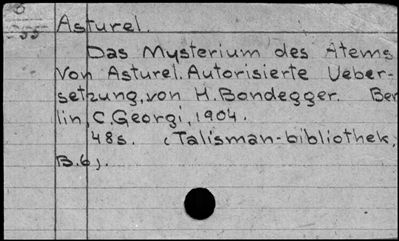 55
Asturel.
Das Mysterium des Atems
Von Asturel. Autorisierte Ueber-
setzung, von H. Bondegger. Ber
lin, C. Georgi, 1904.
48s. (Talisman-bibliothek,
B.6).